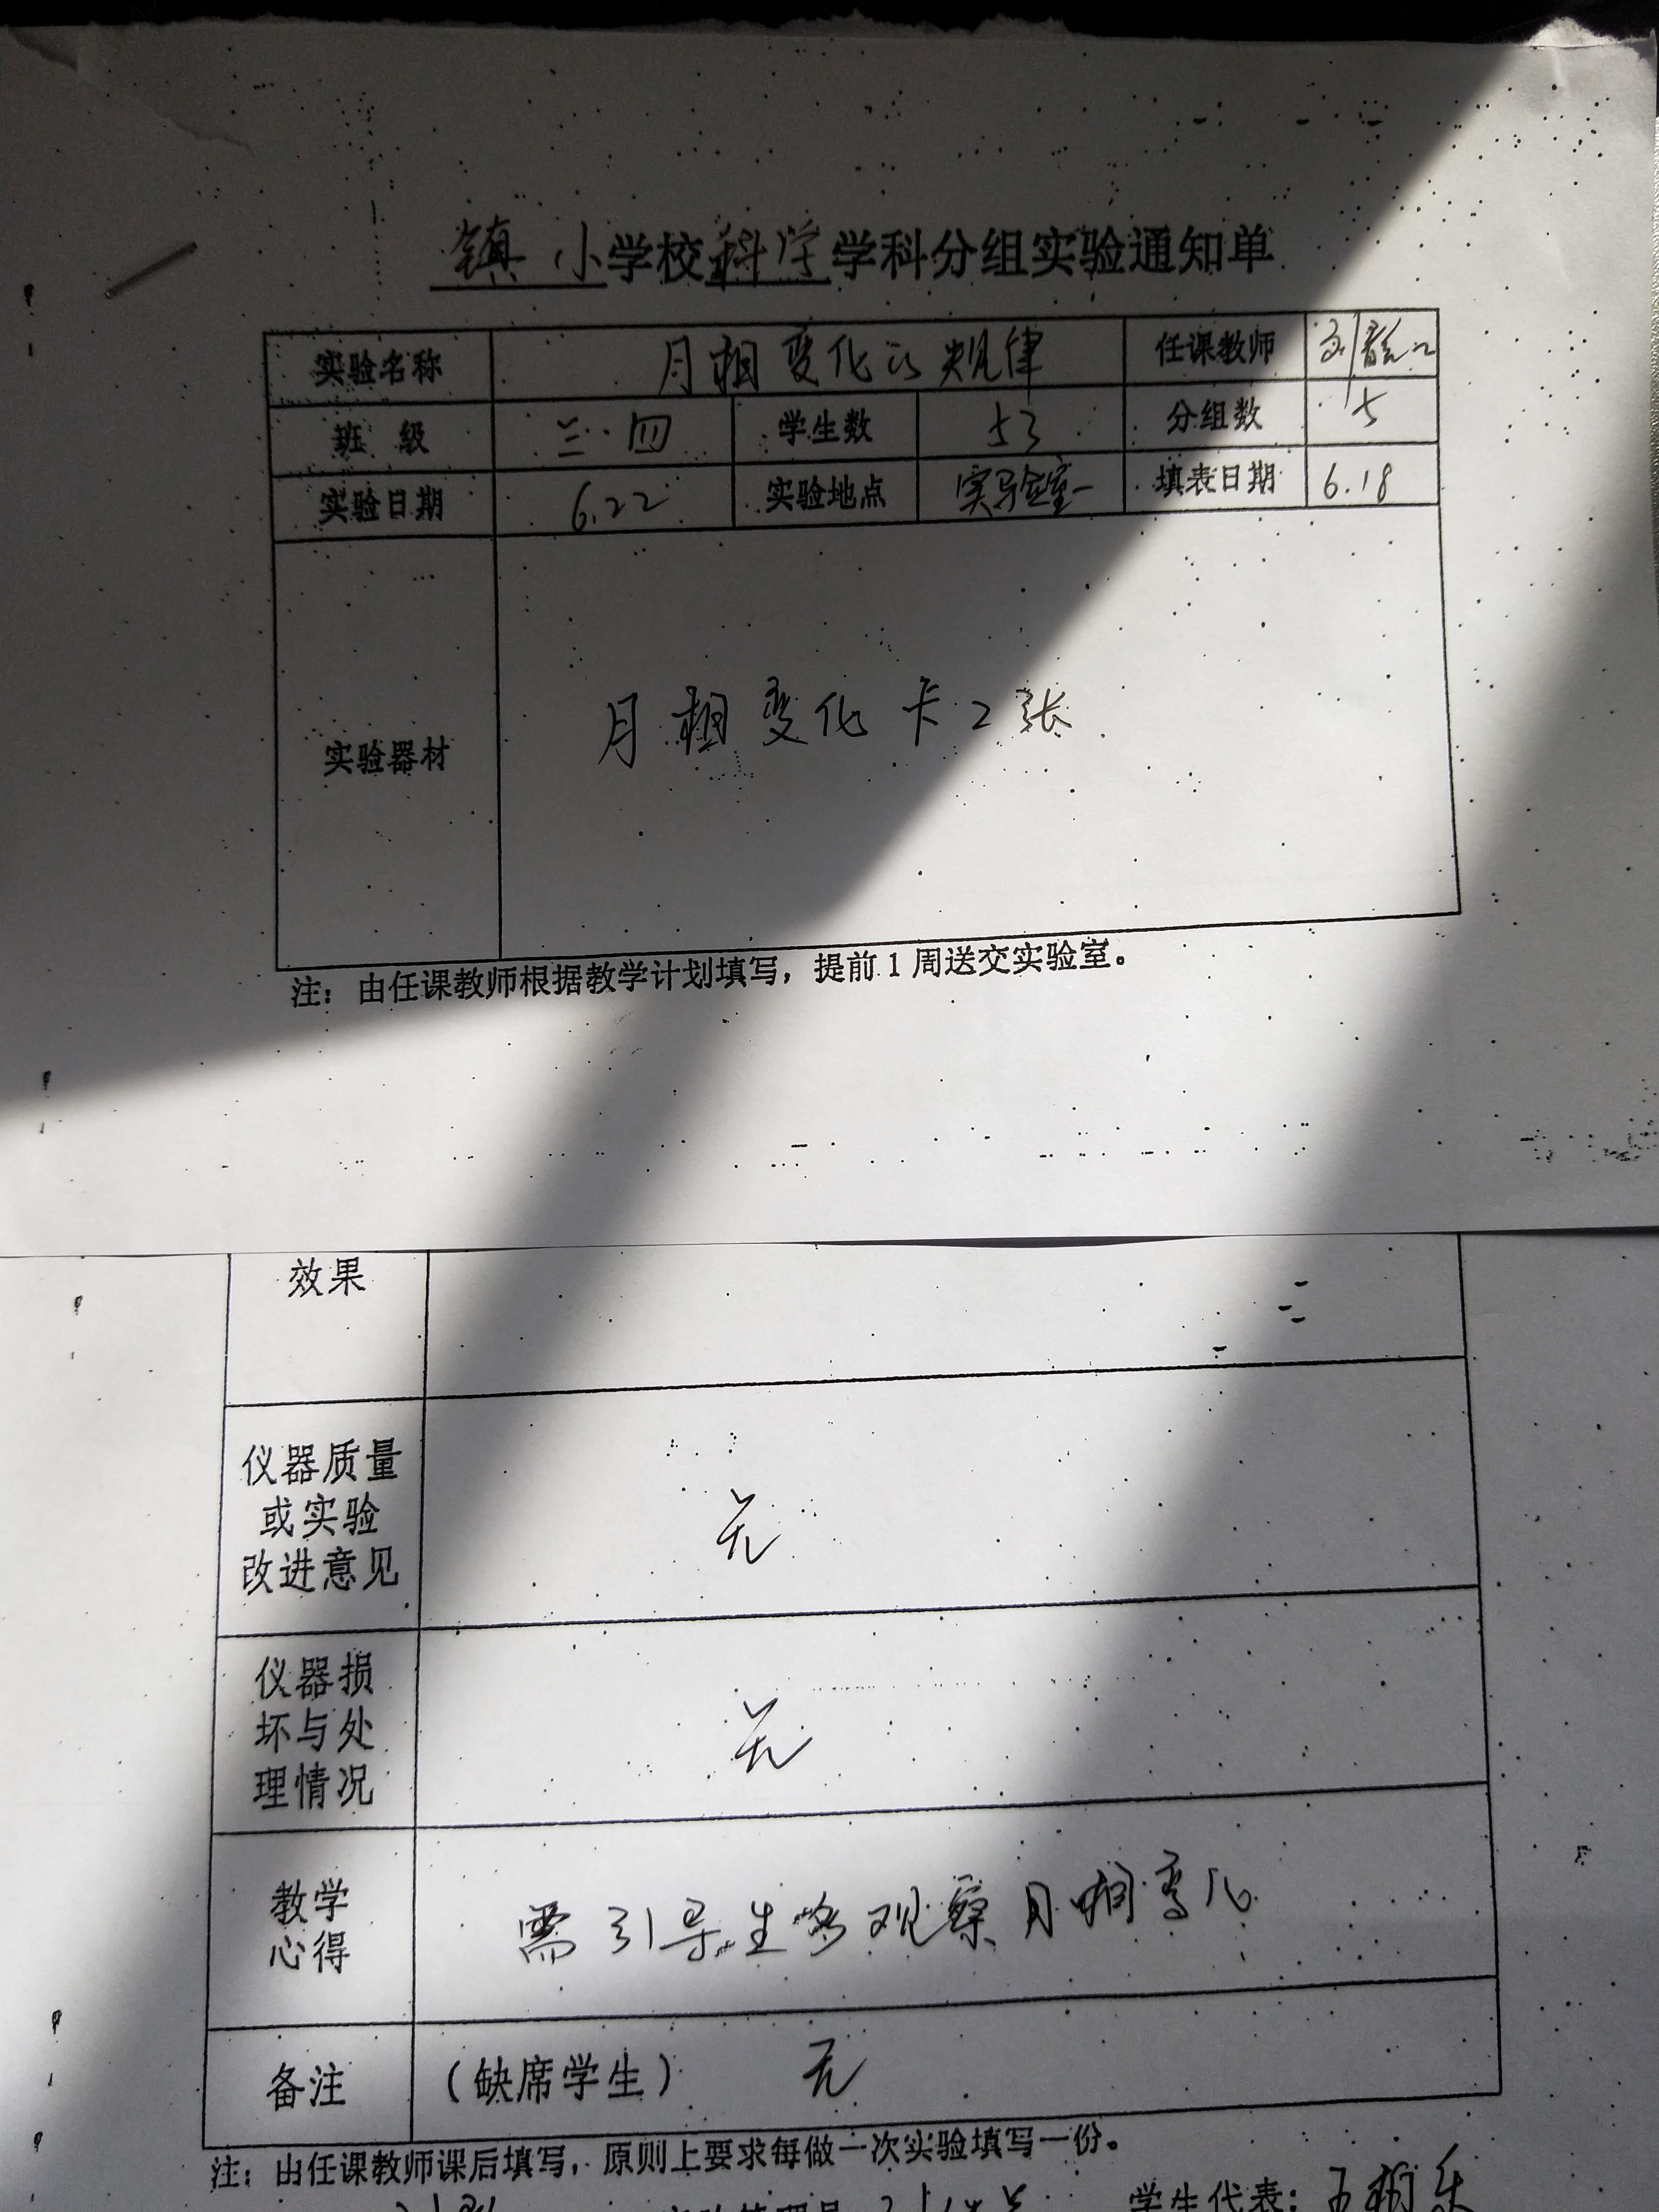 镇小学校科学学科分组实验通知单
实验名称 月相变化的规律 任课教师 刘
班级 三.四 学生数 53 分组数 5
实验日期 6.22 实验地点 实验室一 填表日期 6.18
实验器材 月相变化卡2张
注：由任课教师根据教学计划填写，提前1周送交实验室。
效果
仪器质量
或实验
改进意见
无
仪器损
坏与处
理情况
无
教学
心得
需引导生多观察月相变化
备注 （缺席学生） 无
注：由任课教师课后填写，原则上要求每做一次实验填写一份。
学生代表：